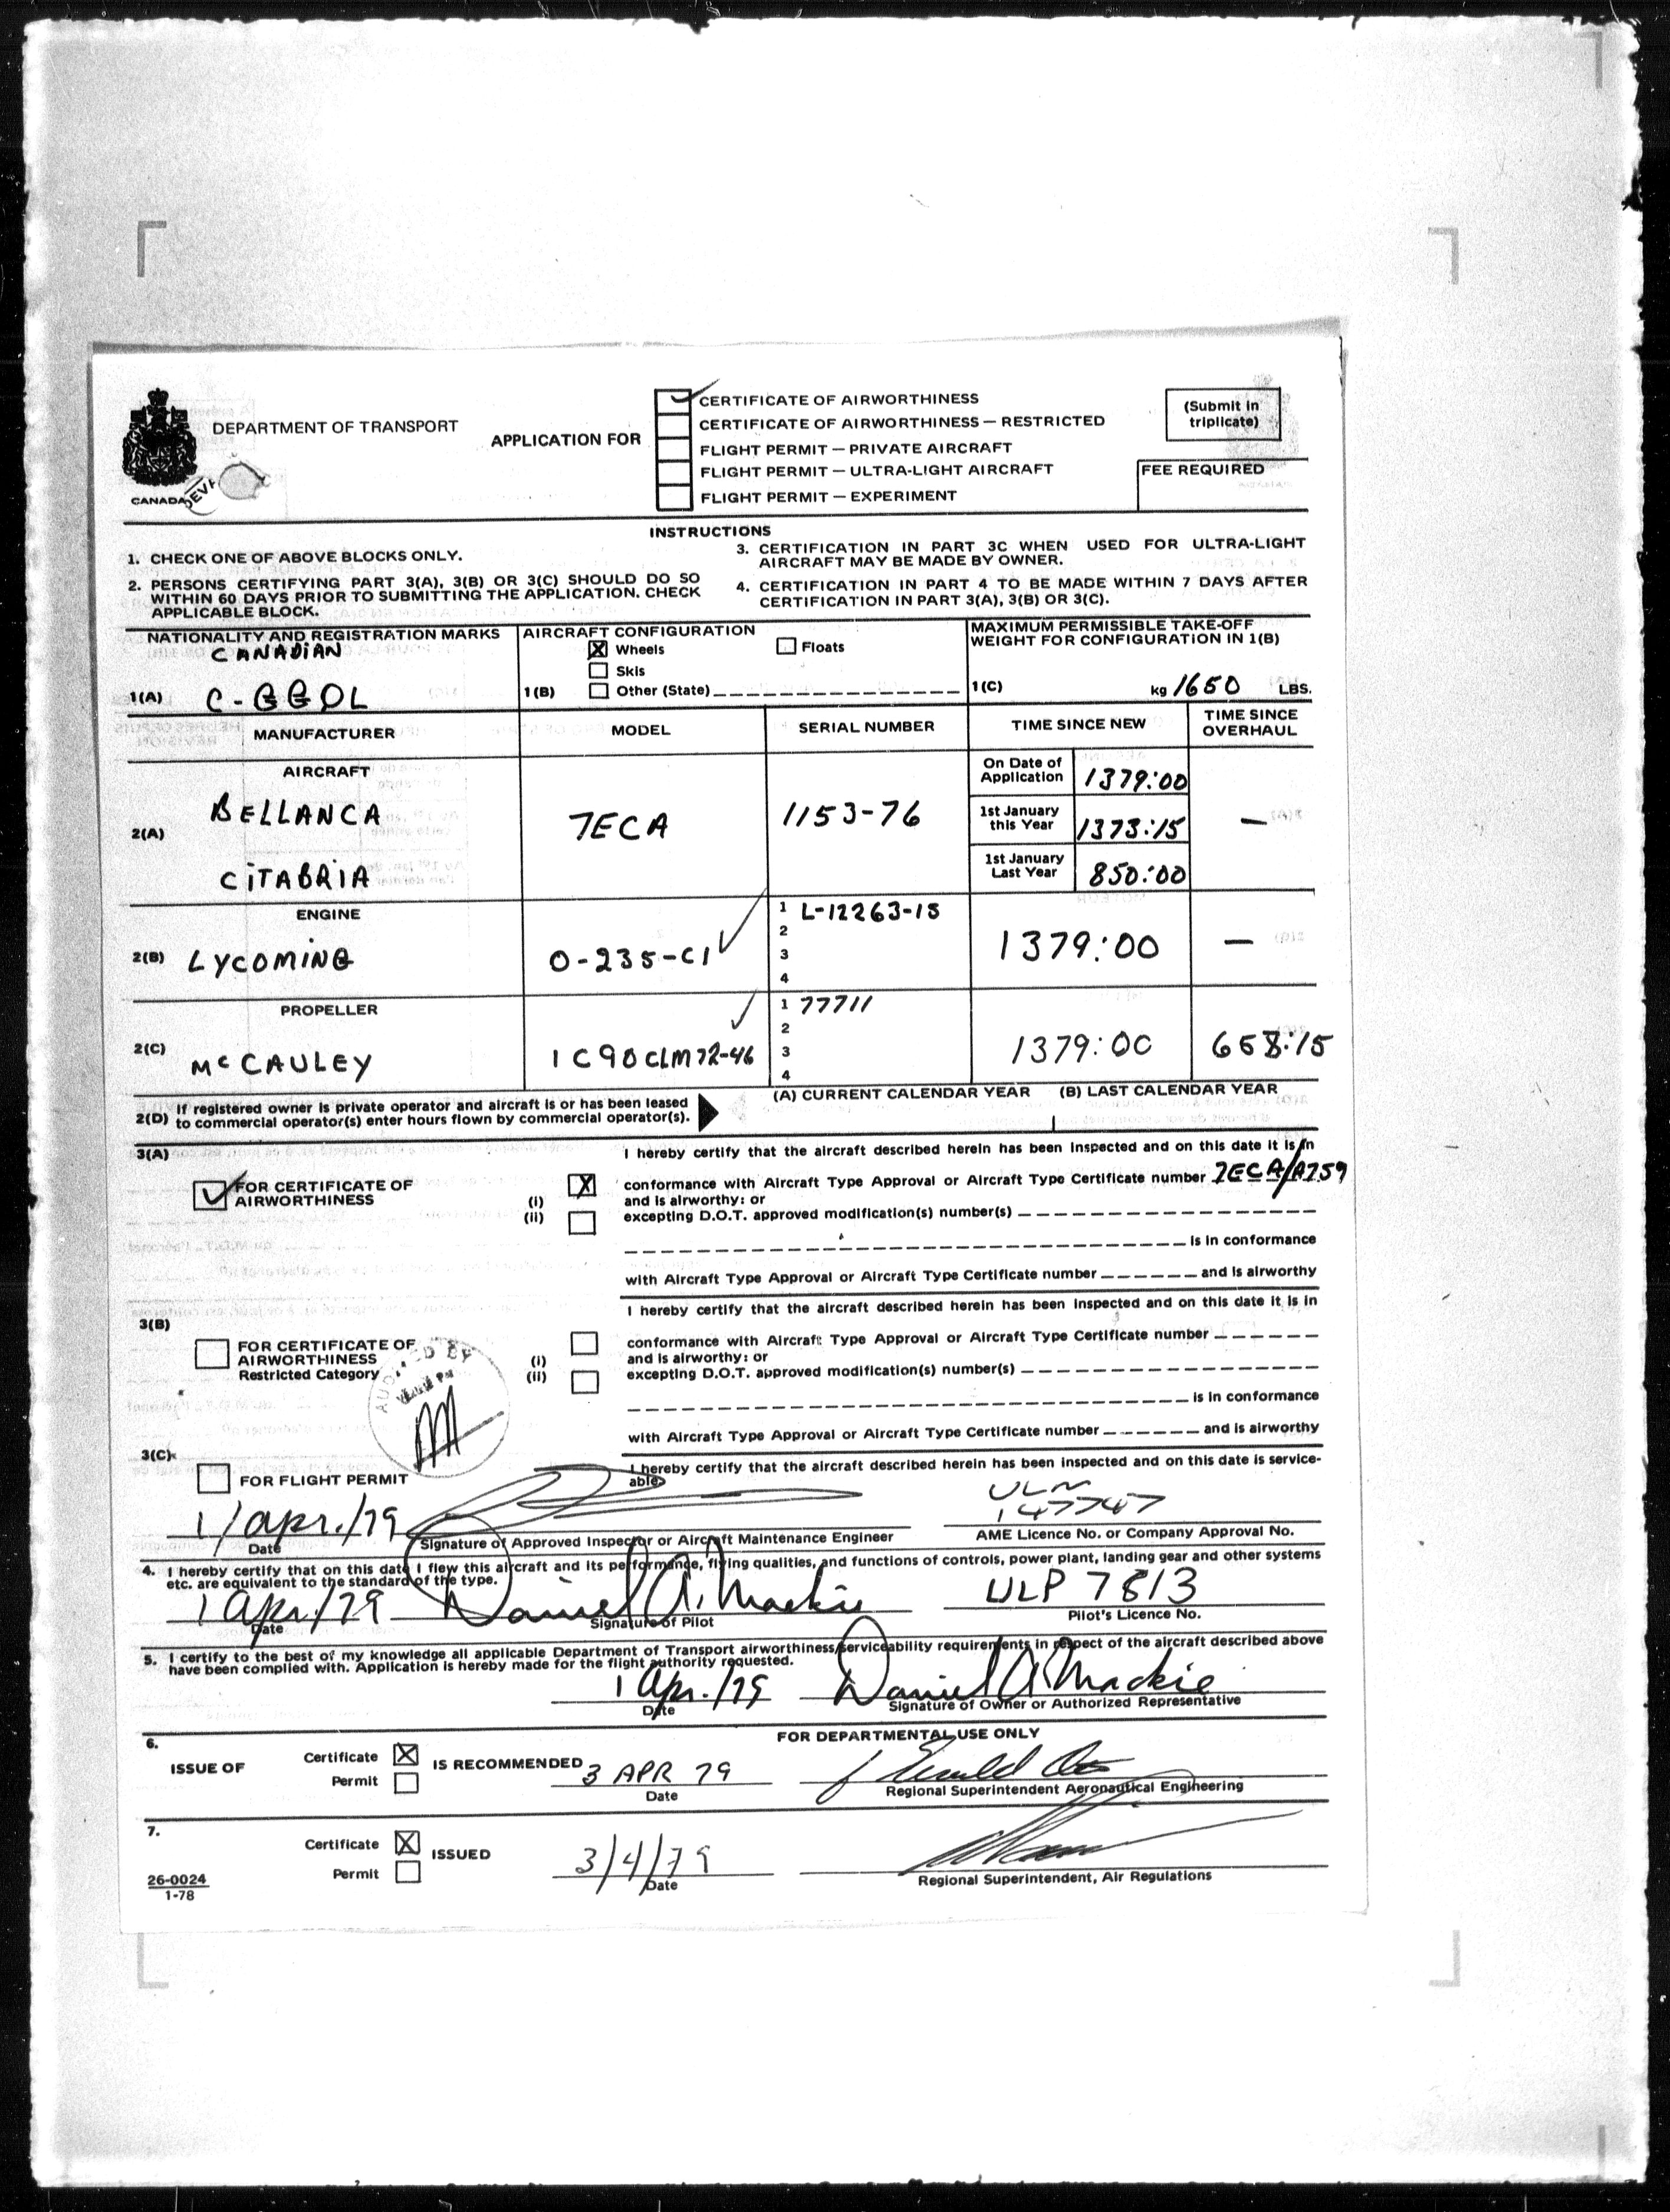 DEPARTMENT OF TRANSPORT
CANADA
APPLICATION FOR
CERTIFICATE OF AIRWORTHINESS
CERTIFICATE OF AIRWORTHINESS — RESTRICTED
FLIGHT PERMIT — PRIVATE AIRCRAFT
FLIGHT PERMIT — ULTRA-LIGHT AIRCRAFT
FLIGHT PERMIT — EXPERIMENT
(Submit in
triplicate)
FEE REQUIRED
INSTRUCTIONS
1. CHECK ONE OF ABOVE BLOCKS ONLY.
2. PERSONS CERTIFYING PART 3(A), 3(B) OR 3(C) SHOULD DO SO
WITHIN 60 DAYS PRIOR TO SUBMITTING THE APPLICATION. CHECK
APPLICABLE BLOCK.
3. CERTIFICATION IN PART 3C WHEN USED FOR ULTRA-LIGHT
AIRCRAFT MAY BE MADE BY OWNER.
4. CERTIFICATION IN PART 4 TO BE MADE WITHIN 7 DAYS AFTER
CERTIFICATION IN PART 3(A), 3(B) OR 3(C).
NATIONALITY AND REGISTRATION MARKS
CANADIAN
1(A) C-GGOL
AIRCRAFT CONFIGURATION
X Wheels
Floats
Skis
1(B) Other (State)
MAXIMUM PERMISSIBLE TAKE-OFF
WEIGHT FOR CONFIGURATION IN 1(B)
1(C) kg 1650 LBS.
MANUFACTURER MODEL SERIAL NUMBER TIME SINCE NEW TIME SINCE OVERHAUL
AIRCRAFT
2(A) BELLANCA
CITABRIA
7ECA
1153-76
On Date of
Application 1379:00
1st January
this Year 1373:15
1st January
Last Year 850:00
—
ENGINE
2(B) LYCOMING
O-235-C1
1 L-12263-15
2
3
4
1379:00
—
PROPELLER
2(C) McCAULEY
1C90CLM72-46
1 77711
2
3
4
1379:00
658:15
2(D) If registered owner is private operator and aircraft is or has been leased
to commercial operator(s) enter hours flown by commercial operator(s).
(A) CURRENT CALENDAR YEAR (B) LAST CALENDAR YEAR
3(A)
FOR CERTIFICATE OF
AIRWORTHINESS
I hereby certify that the aircraft described herein has been inspected and on this date it is in
(i) X conformance with Aircraft Type Approval or Aircraft Type Certificate number 7ECA/A759
and is airworthy: or
(ii) excepting D.O.T. approved modification(s) number(s)
is in conformance
with Aircraft Type Approval or Aircraft Type Certificate number and is airworthy
3(B)
FOR CERTIFICATE OF
AIRWORTHINESS
Restricted Category
I hereby certify that the aircraft described herein has been inspected and on this date it is in
(i) conformance with Aircraft Type Approval or Aircraft Type Certificate number
and is airworthy: or
(ii) excepting D.O.T. approved modification(s) number(s)
is in conformance
with Aircraft Type Approval or Aircraft Type Certificate number and is airworthy
3(C)
FOR FLIGHT PERMIT
I hereby certify that the aircraft described herein has been inspected and on this date is service-
able
1/apr./79
Date
Signature of Approved Inspector or Aircraft Maintenance Engineer
ULM
147747
AME Licence No. or Company Approval No.
4. I hereby certify that on this date I flew this aircraft and its performance, flying qualities, and functions of controls, power plant, landing gear and other systems
etc. are equivalent to the standard of the type.
1 apr./79
Date
Daniel A. Mackie
Signature of Pilot
ULP 7813
Pilot's Licence No.
5. I certify to the best of my knowledge all applicable Department of Transport airworthiness/serviceability requirements in respect of the aircraft described above
have been complied with. Application is hereby made for the flight authority requested.
1 apr./79
Date
Daniel A Mackie
Signature of Owner or Authorized Representative
FOR DEPARTMENTAL USE ONLY
6.
ISSUE OF
Certificate X
Permit
IS RECOMMENDED
3 APR 79
Date
Regional Superintendent Aeronautical Engineering
7.
Certificate X
Permit
ISSUED
3/4/79
Date
Regional Superintendent, Air Regulations
26-0024
1-78